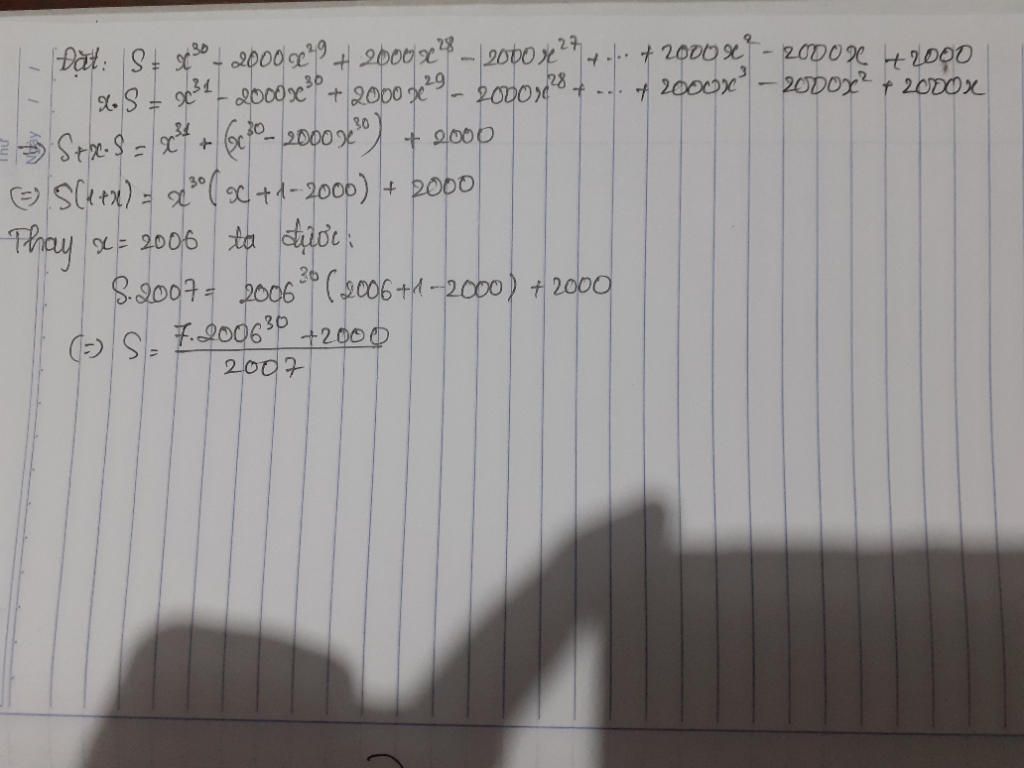 - Đặt: S = x³⁰ - 2000x²⁹ + 2000x²⁸ - 2000x²⁷ + ... + 2000x² - 2000x + 2000
- x.S = x³¹ - 2000x³⁰ + 2000x²⁹ - 2000x²⁸ + ... + 2000x³ - 2000x² + 2000x
=> S+x.S = x³¹ + (x³⁰ - 2000x³⁰) + 2000
(=) S(1+x) = x³⁰(x+1-2000) + 2000
Thay x = 2006 ta được:
S.2007 = 2006³⁰(2006+1-2000) + 2000
(=) S = 7.2006³⁰ + 2000
2007